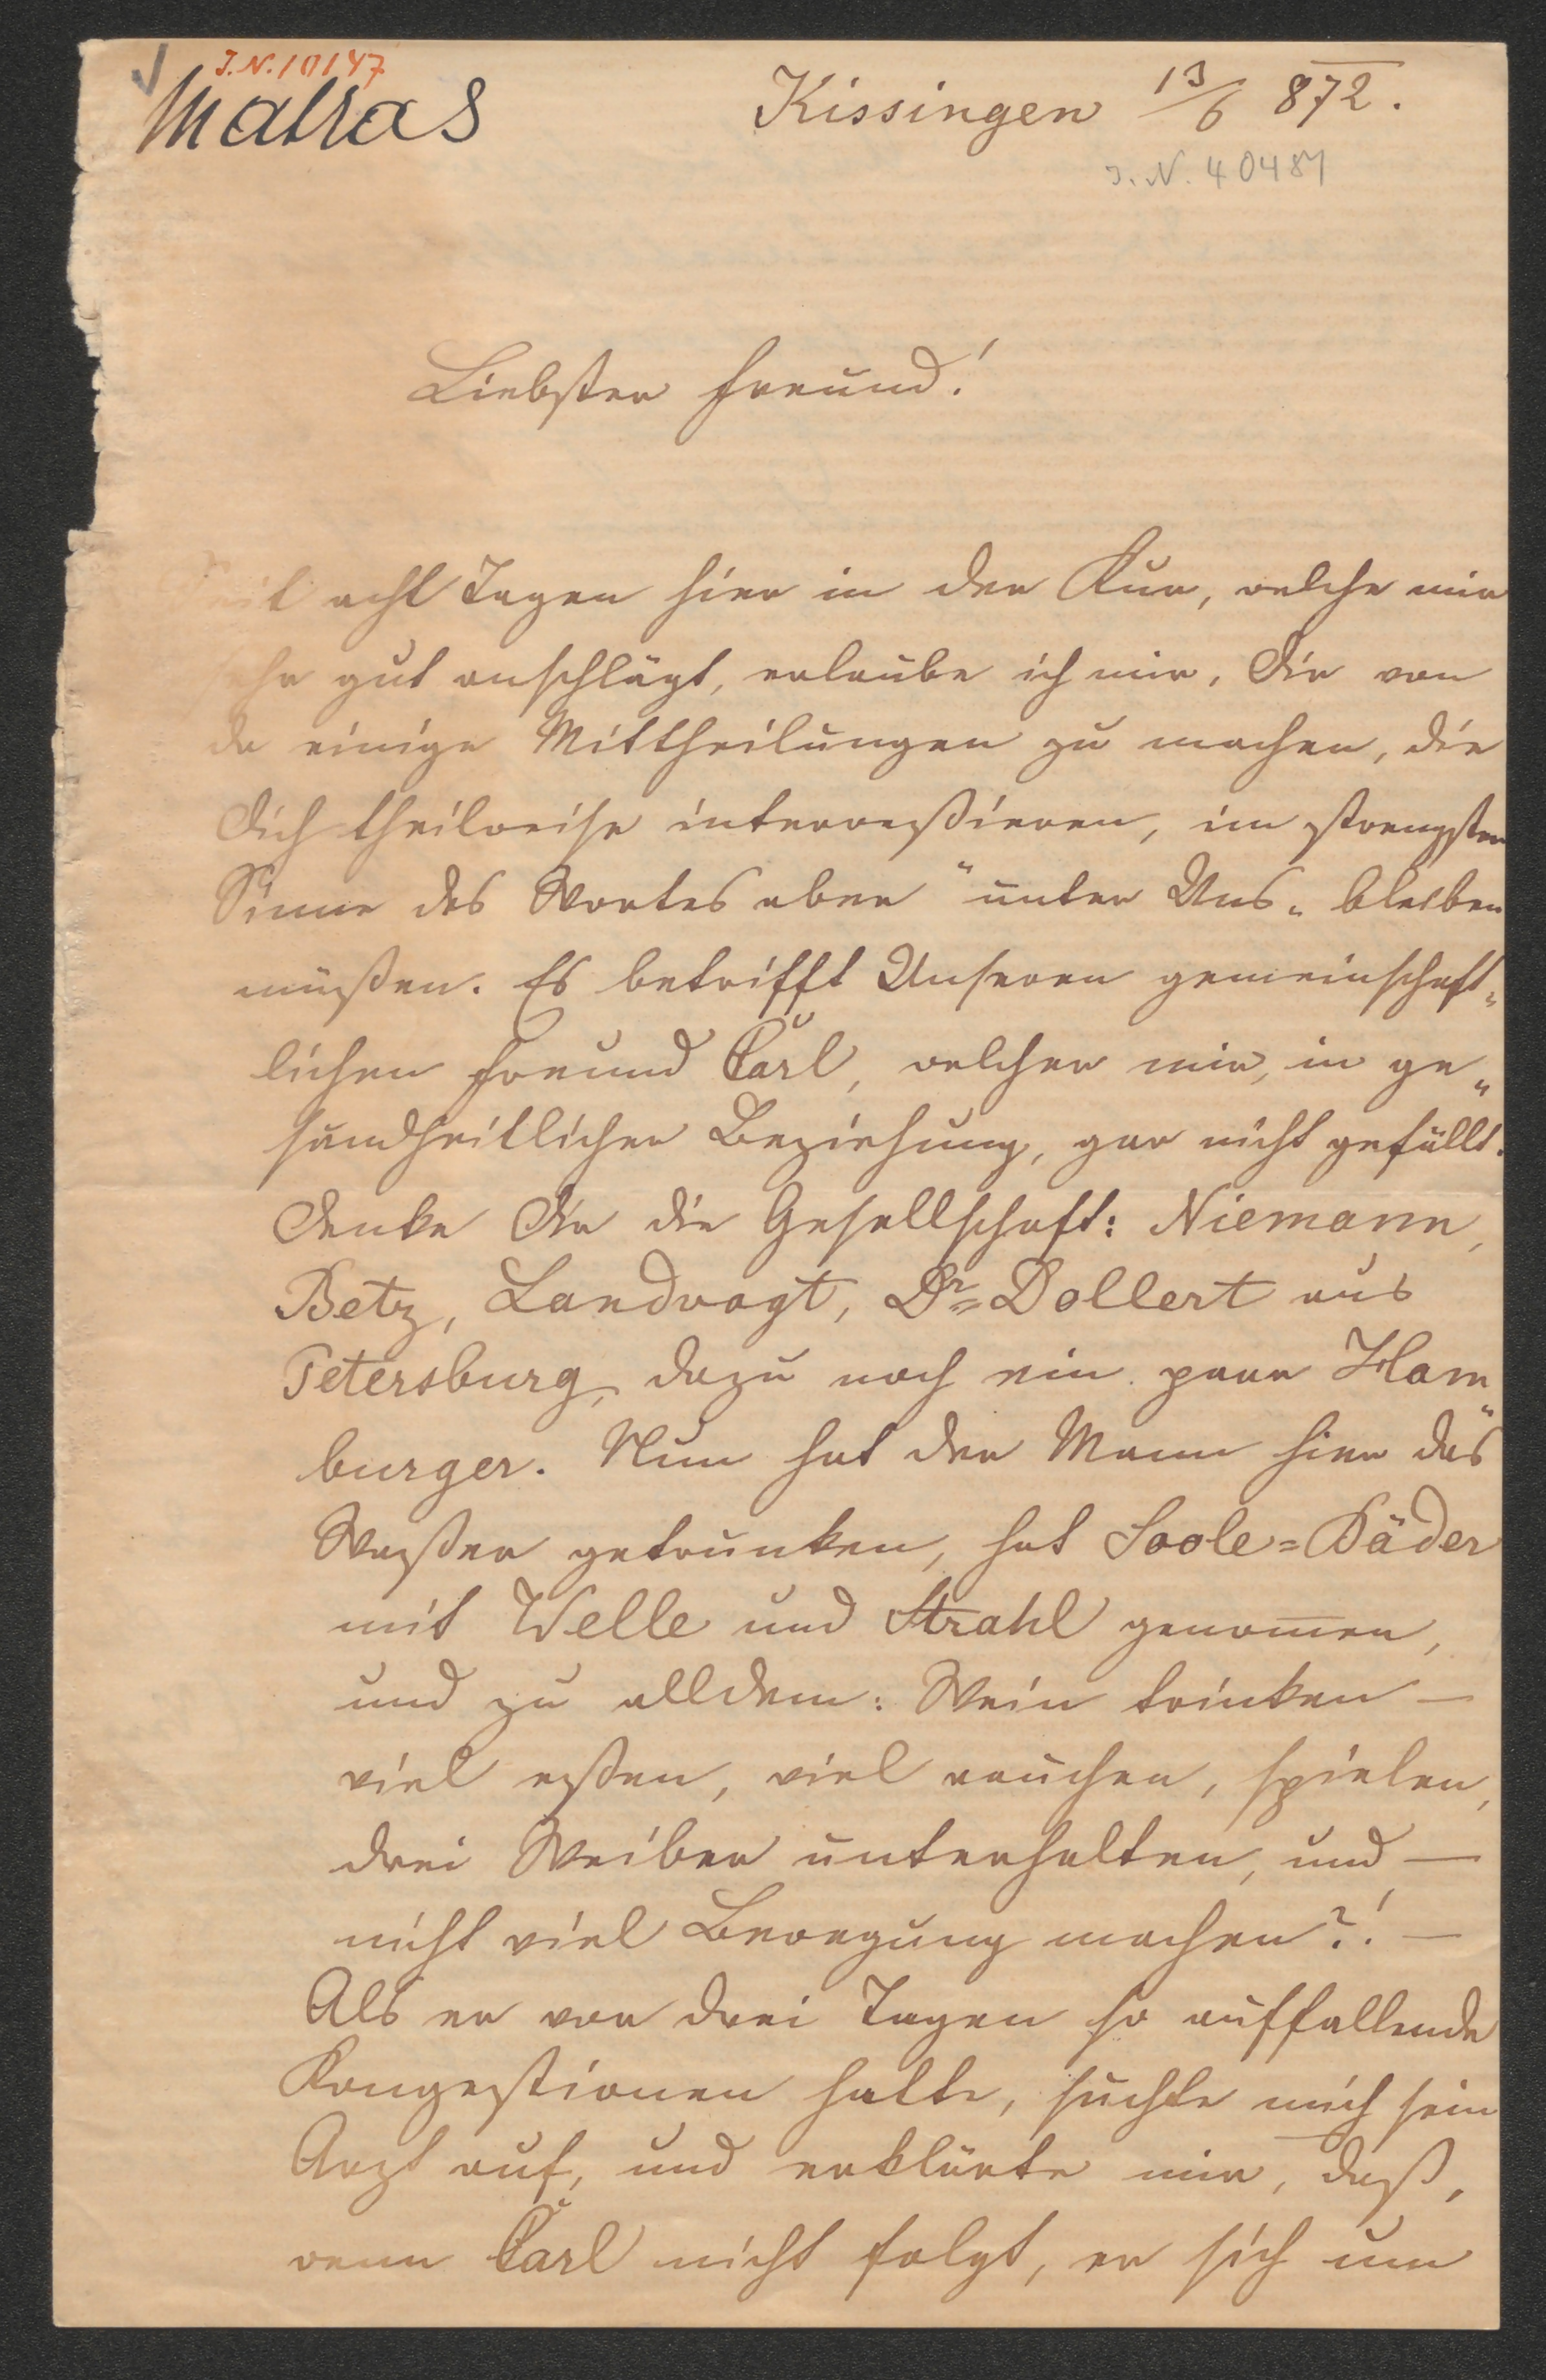 J.N. 10147
Matras
Kissingen 13/6 872.
J.N. 40484
Liebster Freund!
Seit acht Tagen hier in der Kur, welche mir
sehr gut anschlägt, erlaube ich mir, Dir von
da einige Mittheilungen zu machen, die
Dich theilweise interreßieren, im strengsten
Sinne des Wortes aber "unter Uns" bleiben
müßen. Es betrifft Unseren gemeinschaft=
lichen Freund Carl, welcher mir, in ge=
sundheitlicher Beziehung, gar nicht gefällt.
Denke Dir die Gesellschaft: Niemann,
Betz, Landvogt, Dr= Dollert aus
Petersburg, dazu noch ein paar Ham=
burger. Nun hat der Mann hier das
Waßer getrunken, hat Soole=Bäder
mit Welle und Strahl genom̅en,
und zu alldem: Wein trinken —
viel eßen, viel rauchen, spielen,
drei Weiber unterhalten, und —
nicht viel Bewegung machen?! —
Als er vor drei Tagen so auffallende
Kongestionen hatte, suchte mich sein
Arzt auf, und erklärte mir, daß,
wenn Carl nicht folgt, er sich um